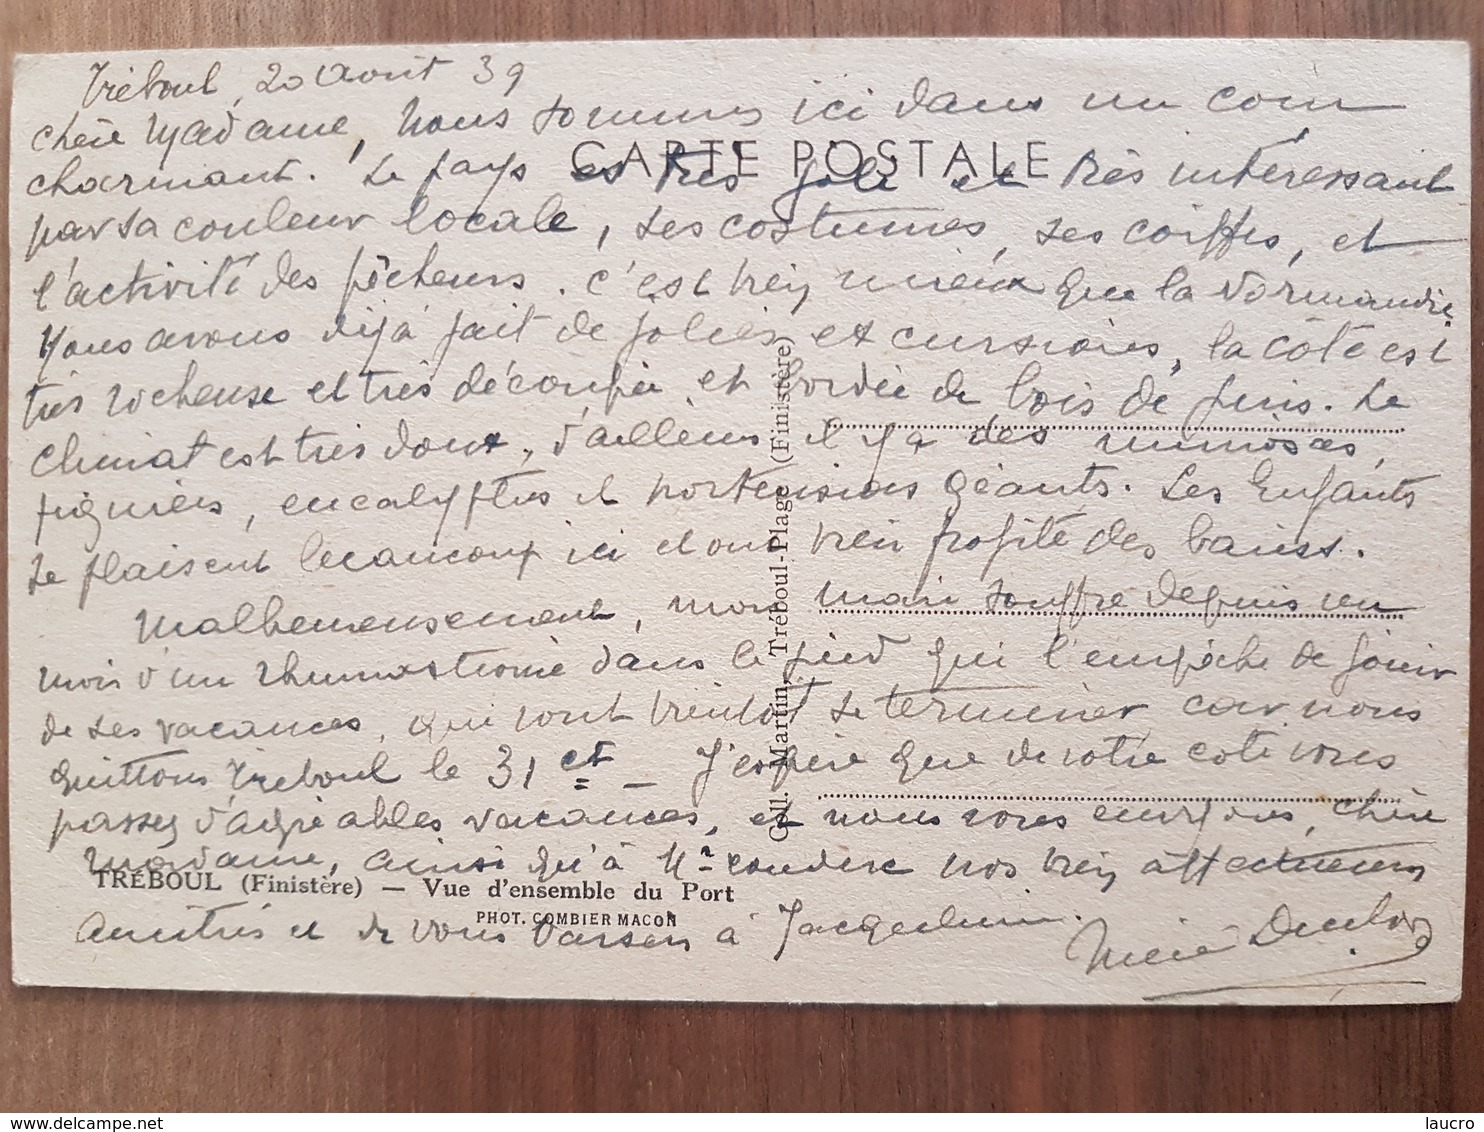 Tréboul, 20 Août 39
Chère Madame, Nous sommes ici dans un coin
CARTE POSTALE
charmant. Le pays est très joli et très intéressant
par sa couleur locale, ses costumes, ses coiffes, et
l'activité des pêcheurs. C'est bien mieux que la Normandie.
Nous avons déjà fait de jolies excursions, la côte est
très rocheuse et très découpée et bordée de bois de pins. Le
climat est très doux, d'ailleurs il y a des mimosas,
figuiers, eucalyptus et hortensias géants. Les Enfants
se plaisent beaucoup ici et ont bien profité des bains.
Malheureusement, mon mari souffre depuis un
mois d'un rhumatisme dans le pied qui l'empêche de jouir
de ses vacances, qui vont bientôt se terminer car nous
quittons Tréboul le 31 ct _ J'espère que de votre côté vous
passez d'agréables vacances, et nous vous envoyons, chère
Madame, ainsi qu'à Mr nos bien affectueuses
amitiés et de bons baisers à Jacqueline.
TRÉBOUL (Finistère) — Vue d'ensemble du Port
PHOT. COMBIER MACON
Coll. Martin, Tréboul-Plage (Finistère)
laucro